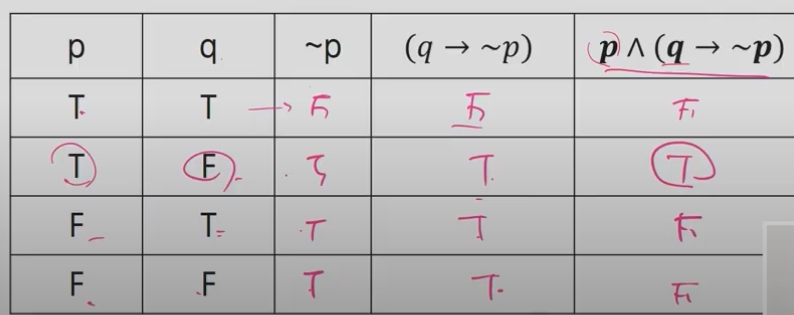 p q ~p (q → ~p) p ∧ (q → ~p)
T T → F F F
T F T T
F T T T F
F F T T F